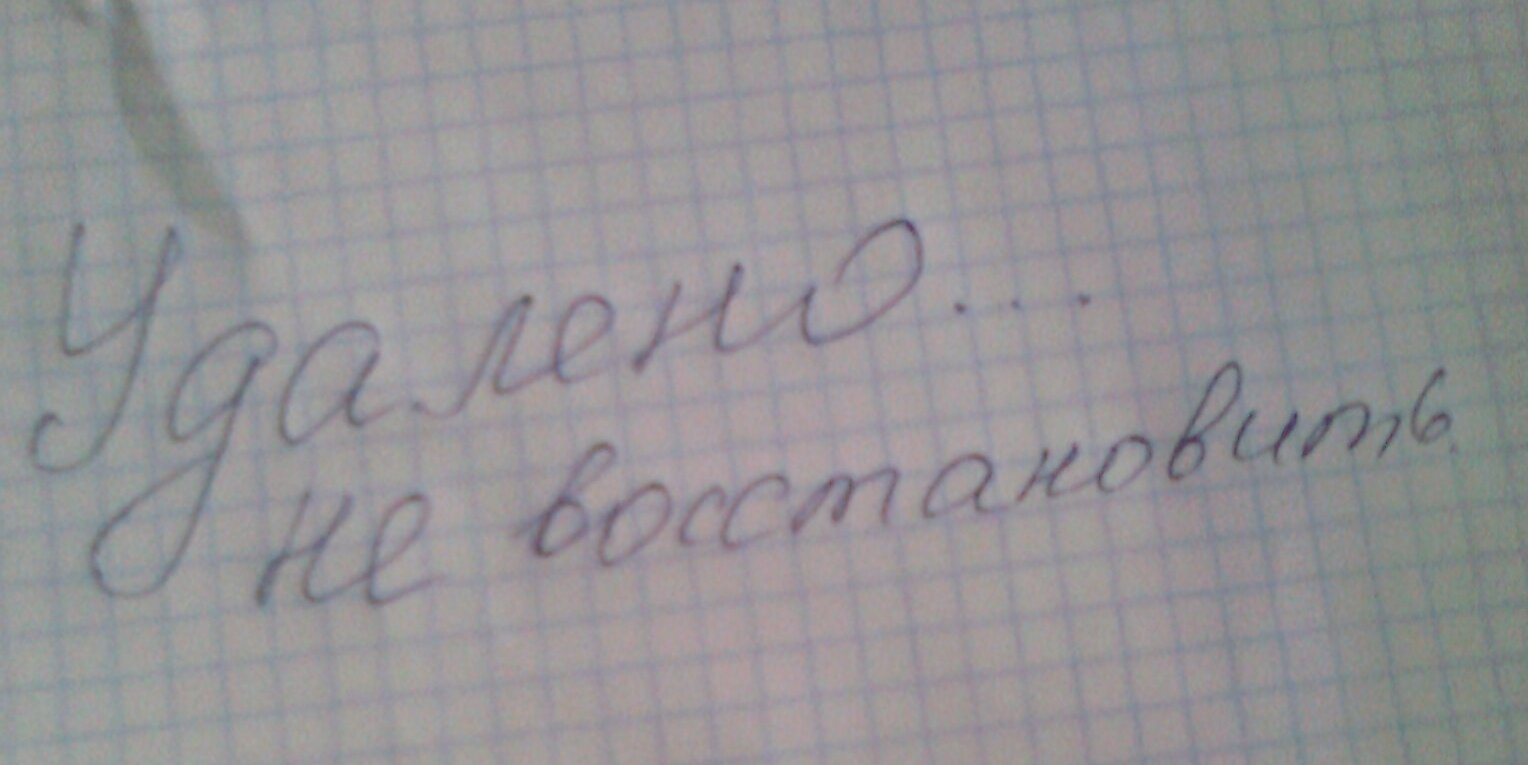 Удалено...
не восстановить.